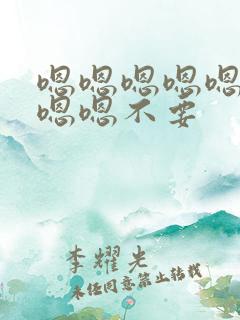 嗯嗯嗯嗯嗯
嗯嗯不要
李耀光
未经同意禁止转载